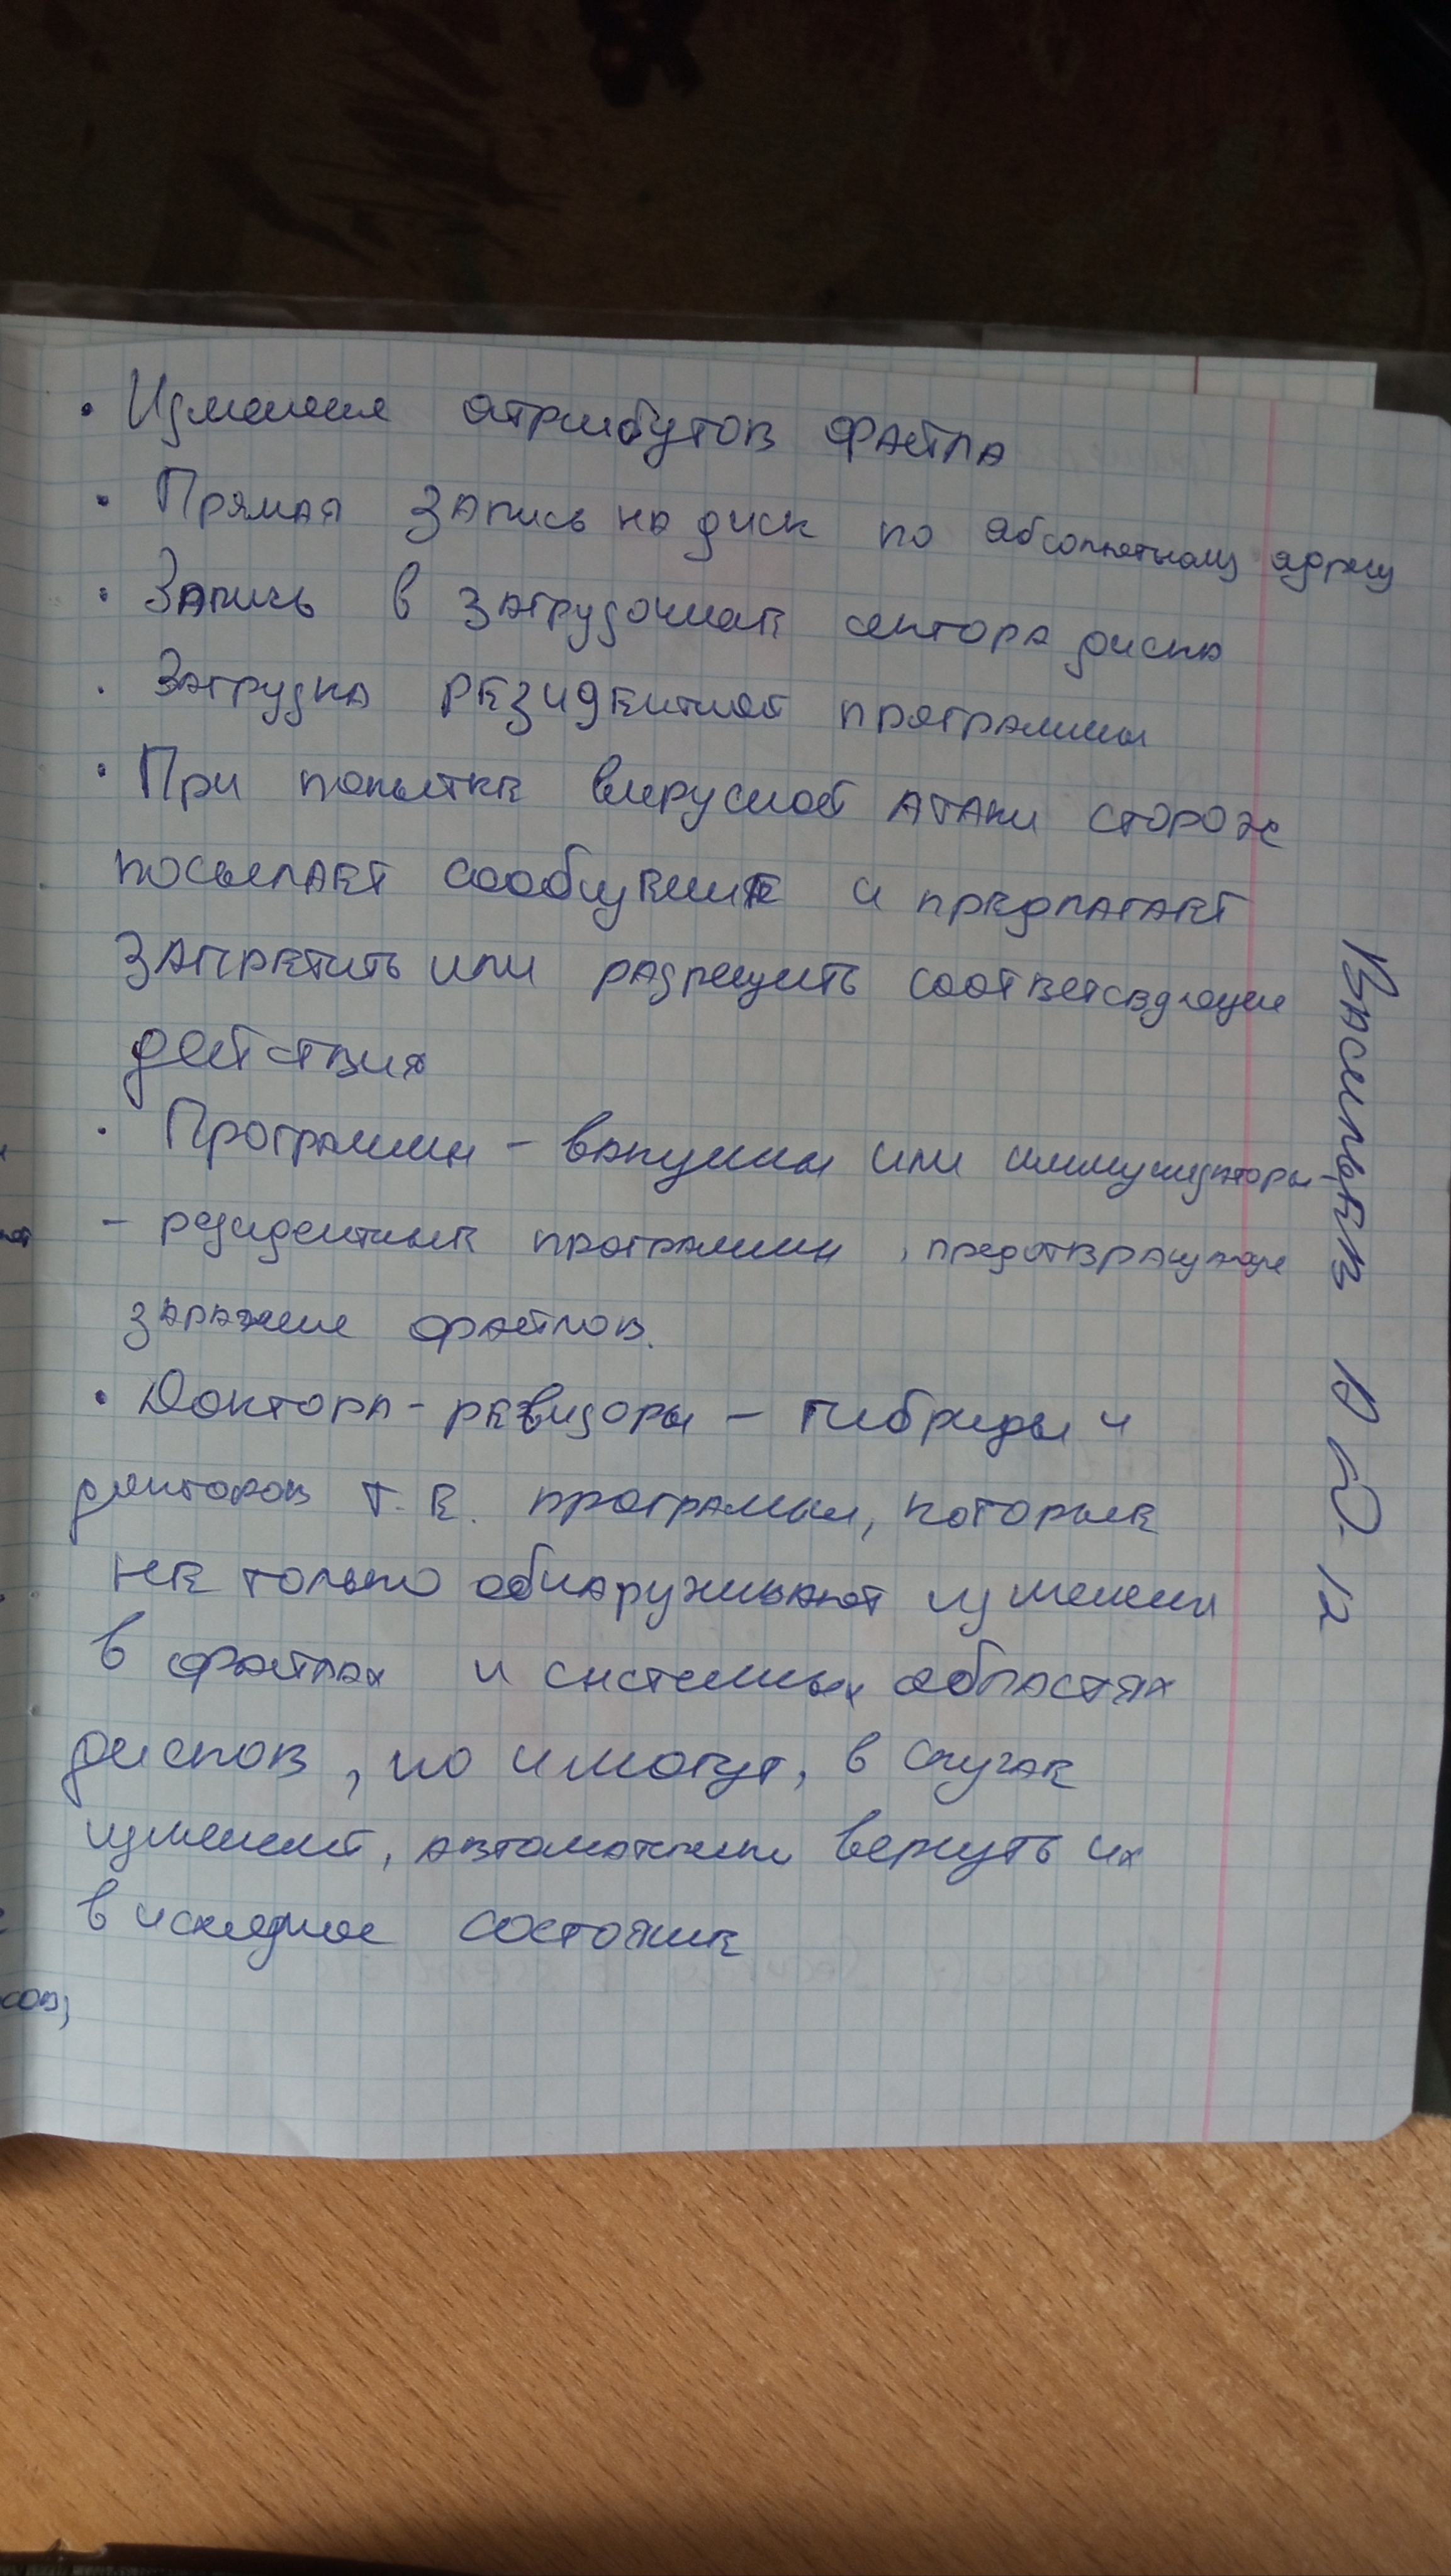 • Изменения атрибутов файла
• Прямая запись на диск по абсолютному адресу
• Запись в загрузочные сектора диска
• Загрузка резидентной программы
• При попытке вирусной атаки сторож
посылает сообщение и предлагает
запретить или разрешить соответсвдующие
действия
• Программы - вакцины или иммунизаторы -
- резидентные программы, предотвращающие
заражение файлов.
• Доктора-ревизоры - гибриды и
докторов т.е. программы, которые
не только обнаруживают изменения
в файлах и системных областях
дисков, но и могут, в случае
изменений, автоматически вернуть их
в исходное состояние
сов;
Васильев